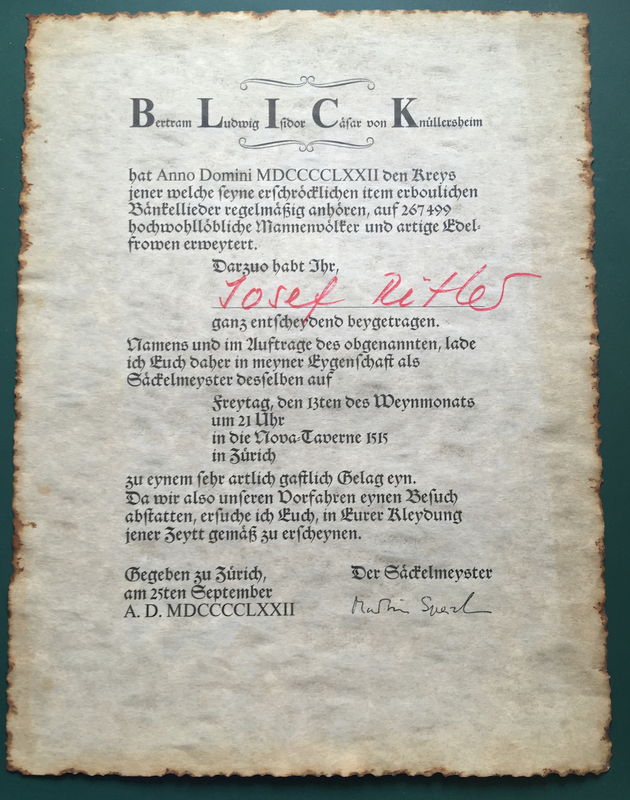 Bertram Ludwig Isidor Cäsar von Knüllersheim
hat Anno Domini MDCCCCLXXII den Kreys
jener welche seyne erschröcklichen item erboulichen
Bänkellieder regelmäßig anhören, auf 267 499
hochwohllöbliche Mannenvölker und artige Edel-
frowen erweytert.
Darzuo habt Ihr,
Josef Ritler
ganz entscheydend beygetragen.
Namens und im Auftrage des obgenannten, lade
ich Euch daher in meyner Eygenschaft als
Säckelmeyster desselben auf
Freytag, den 13ten des Weynmonats
um 21 Uhr
in die Nova-Taverne 1515
in Zürich
zu eynem sehr artlich gastlich Gelag eyn.
Da wir also unseren Vorfahren eynen Besuch
abstatten, ersuche ich Euch, in Eurer Kleydung
jener Zeytt gemäß zu erscheynen.
Gegeben zu Zürich,
am 25ten September
A. D. MDCCCCLXXII
Der Säckelmeyster
Martin